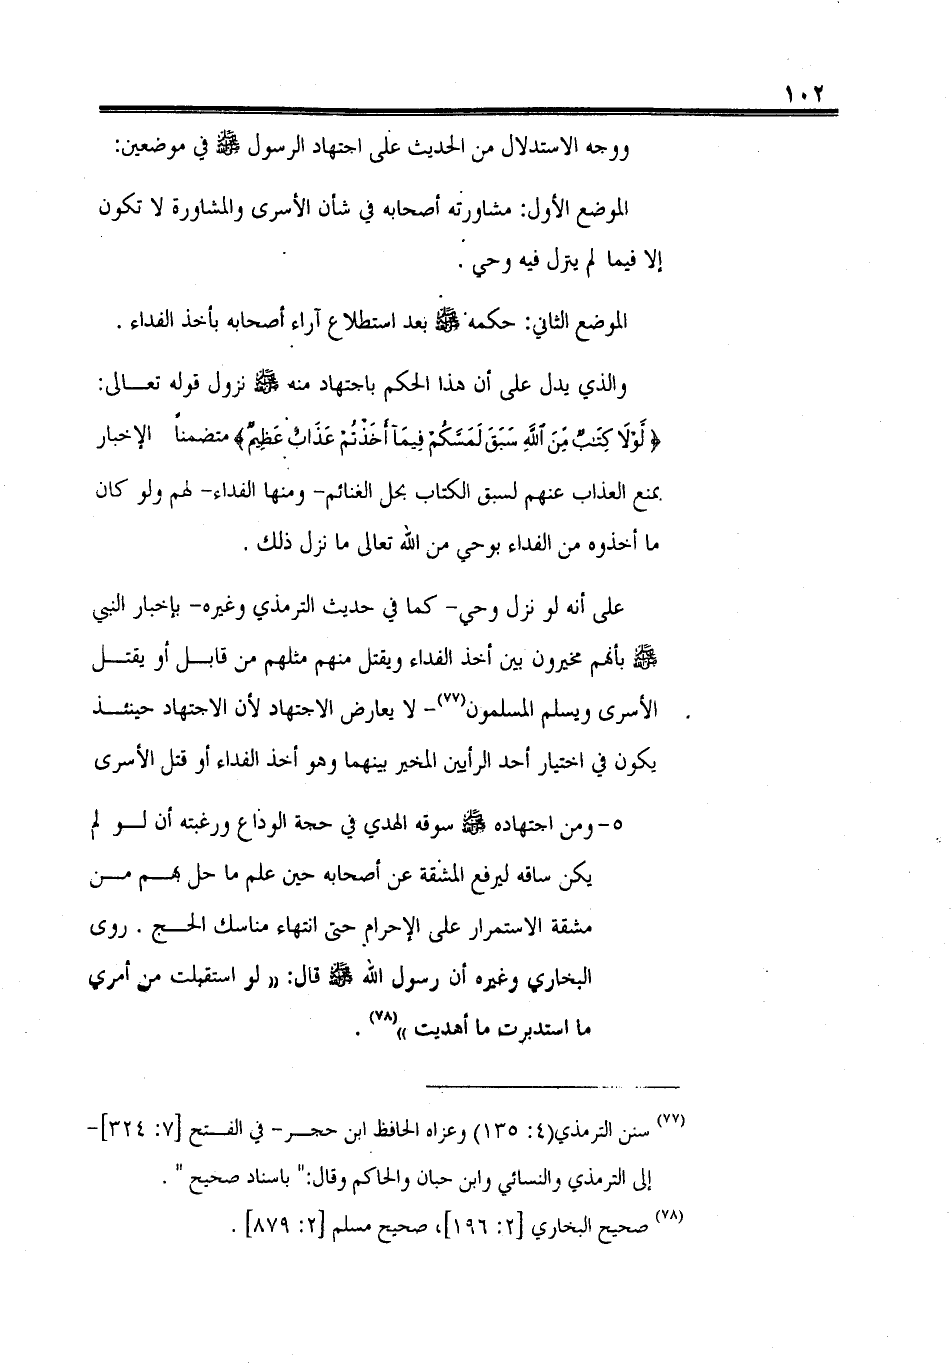 ١٠٢
ووجه الاستدلال من الحديث على اجتهاد الرسول ﷺ في موضعين:
الموضع الأول: مشاورته أصحابه في شأن الأسرى والمشاورة لا تكون
إلا فيما لم ينزل فيه وحي .
الموضع الثاني: حكمه ﷺ بعد استطلاع آراء أصحابه بأخذ الفداء .
والذي يدل على أن هذا الحكم باجتهاد منه ﷺ نزول قوله تعـــالى:
﴿ لَّوْلَا كِتَٰبٌ مِّنَ ٱللَّهِ سَبَقَ لَمَسَّكُمْ فِيمَآ أَخَذْتُمْ عَذَابٌ عَظِيمٌ﴾ متضمناً الإخبار
بمنع العذاب عنهم لسبق الكتاب بحل الغنائم– ومنها الفداء– لهم ولو كان
ما أخذوه من الفداء بوحي من الله تعالى ما نزل ذلك .
على أنه لو نزل وحي– كما في حديث الترمذي وغيره– بإخبار النبي
ﷺ بأنهم مخيرون بين أخذ الفداء ويقتل منهم مثلهم من قابـــل أو يقتـــل
الأسرى ويسلم المسلمون(٧٧)– لا يعارض الاجتهاد لأن الاجتهاد حينئـــذ
يكون في اختيار أحد الرأيين المخير بينهما وهو أخذ الفداء أو قتل الأسرى
٥– ومن اجتهاده ﷺ سوقه الهدي في حجة الوداع ورغبته أن لـــو لم
يكن ساقه ليرفع المشقة عن أصحابه حين علم ما حل بهـــم مـــن
مشقة الاستمرار على الإحرام حتى انتهاء مناسك الحـــج . روى
البخاري وغيره أن رسول الله ﷺ قال: (( لو استقبلت من أمري
ما استدبرت ما أهديت ))(٧٨) .
(٧٧) سنن الترمذي(٤: ١٣٥) وعزاه الحافظ ابن حجـــر– في الفـــتح [٧: ٣٢٤]–
إلى الترمذي والنسائي وابن حبان والحاكم وقال:" باسناد صحيح " .
(٧٨) صحيح البخاري [٢: ١٩٦]، صحيح مسلم [٢: ٨٧٩] .